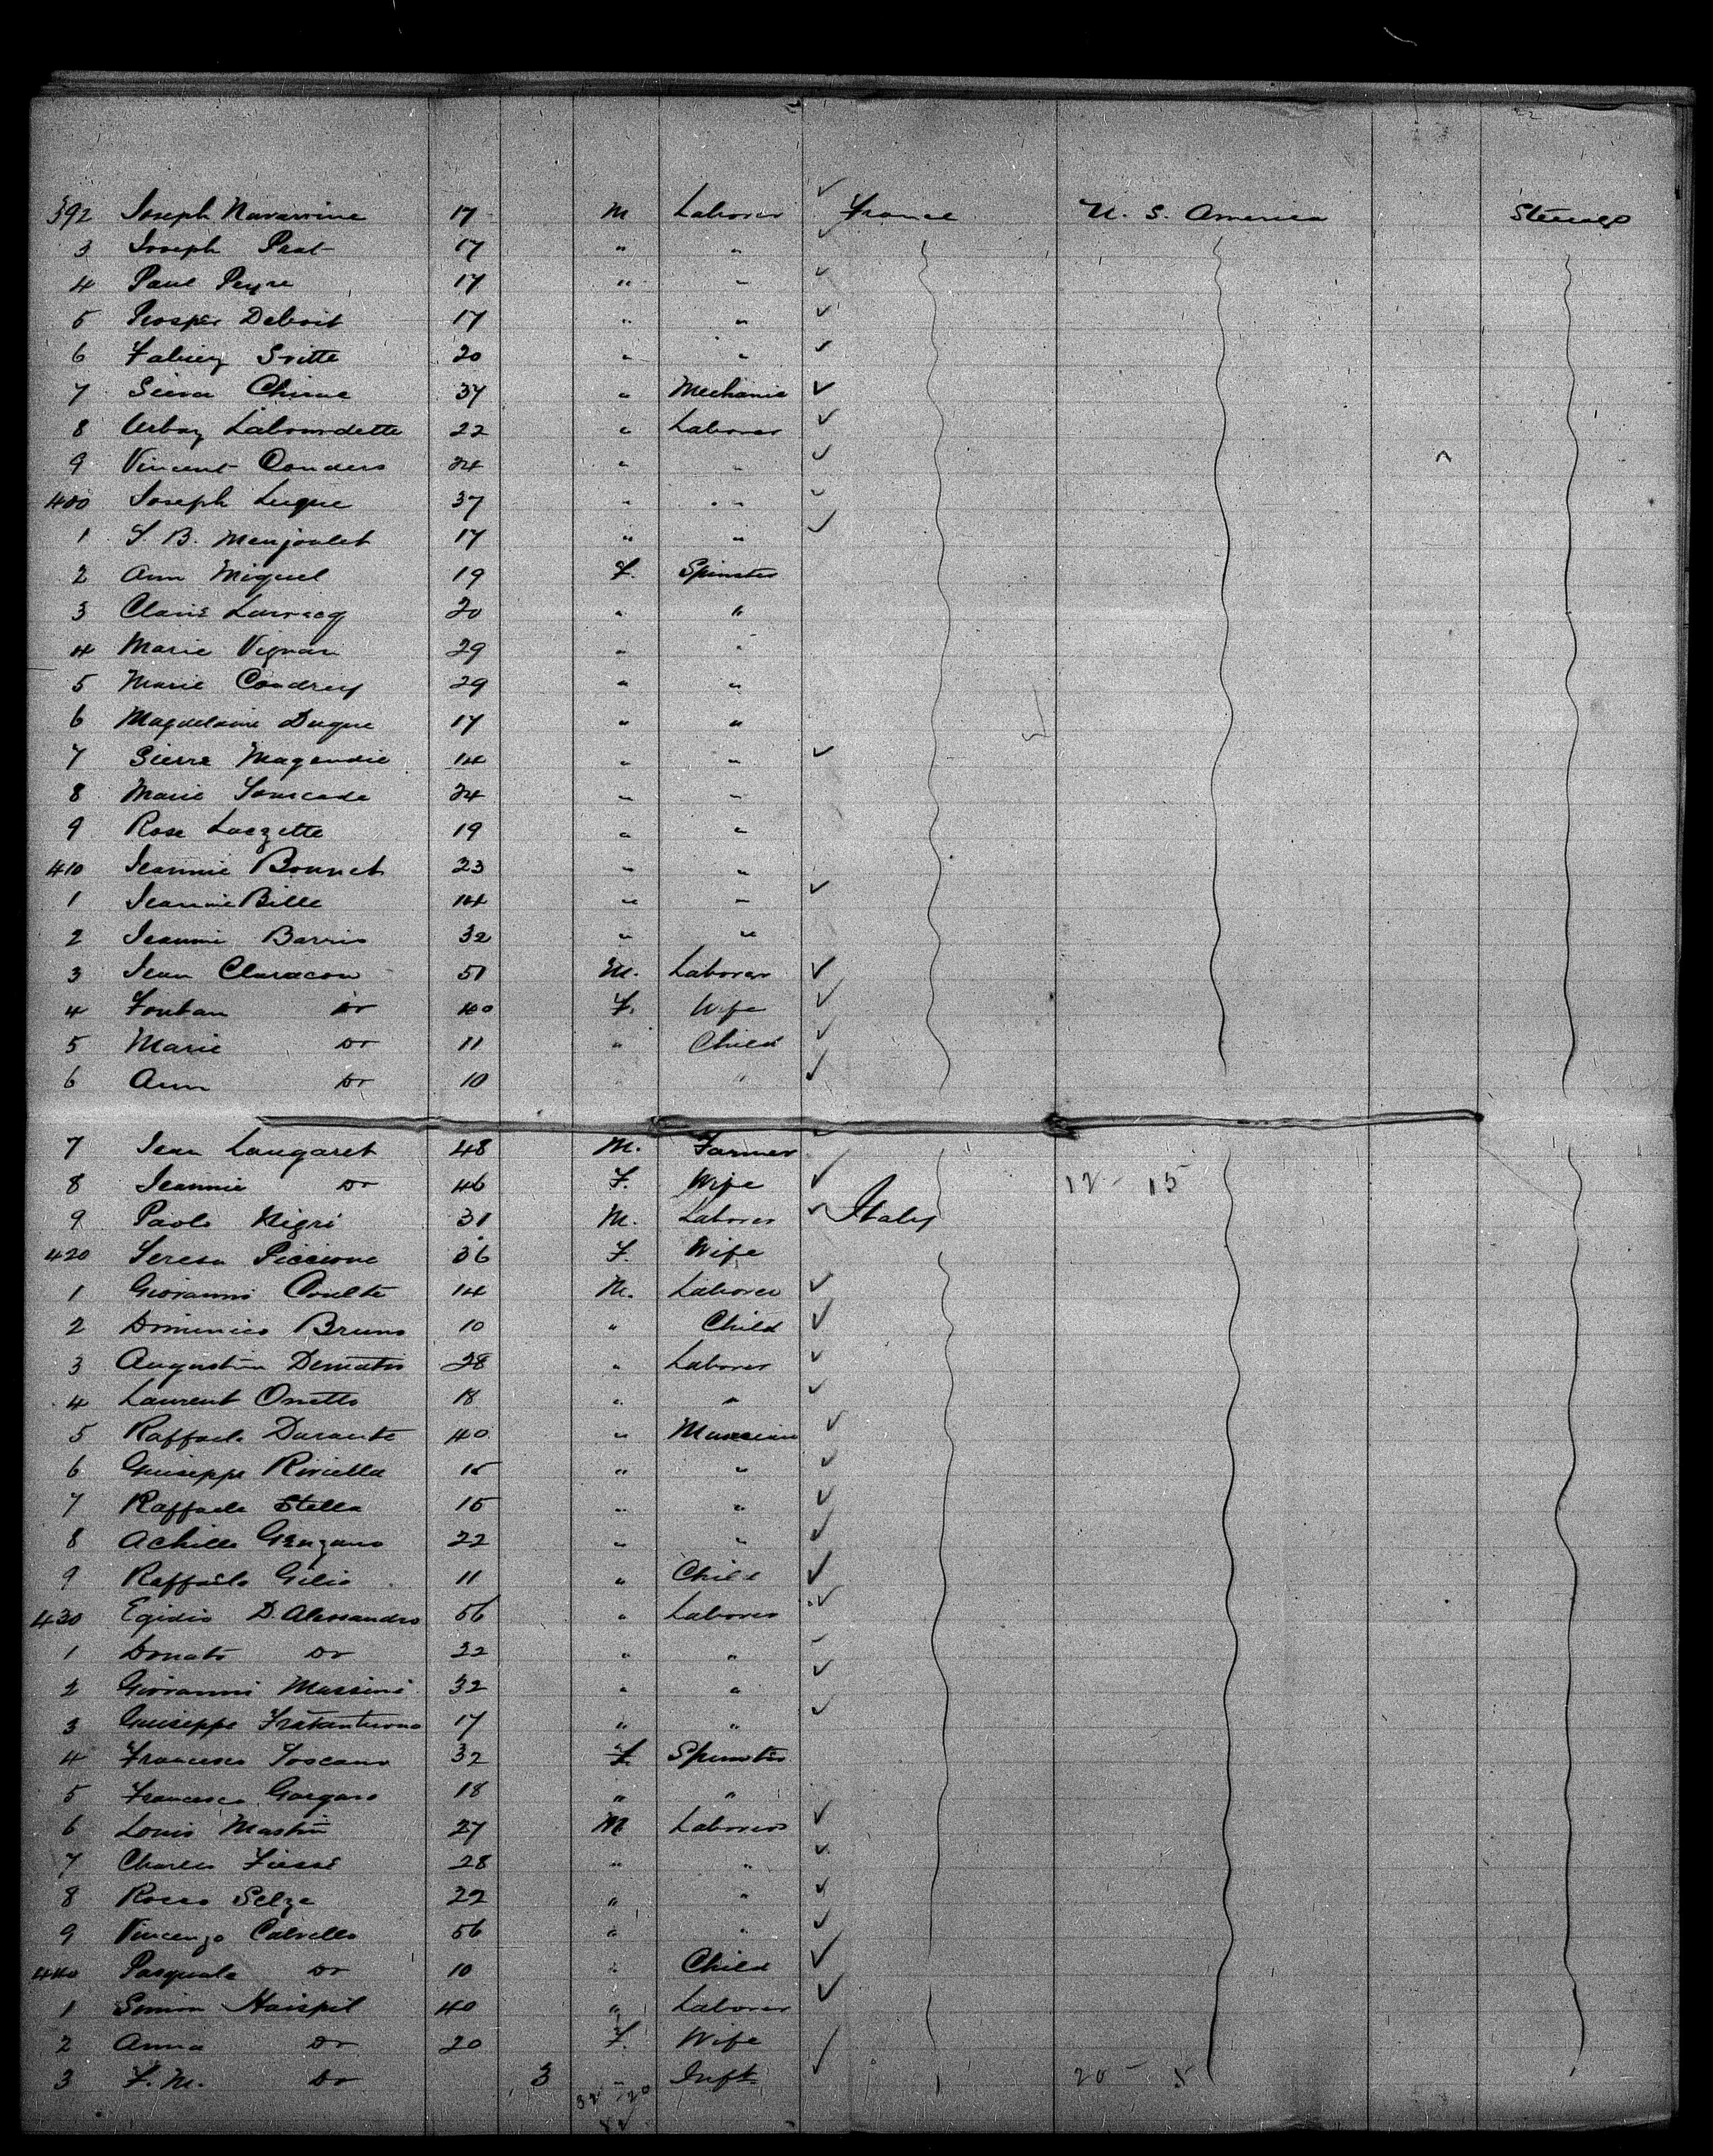 392 Joseph Navarrine 17 M Laborer France U. S. America Steerage
3 Joseph Prat 17 " "
4 Paul Peyre 17 " "
5 Prosper Deboit 17 " "
6 20 " "
7 37 " Mechanic
8 Labourdette 22 " Laborer
9 Vincent Conders 24 " "
400 Joseph Luque 37 " "
1 J. B. Menjoulet 17 " "
2 Ann Miguel 19 F. Spinster
3 20 " "
4 Marie Vignan 29 " "
5 Marie 29 " "
6 Magdelaine Duque 17 " "
7 Pierre Magendie 14 " "
8 Marie 24 " "
9 Rose 19 " "
410 Jeannie Bonnet 23 " "
1 Jeannie Bille 14 " "
2 Jeannie Barris 32 " "
3 Jean Claracon 51 M. Laborer
4 Fontan Do 40 F. Wife
5 Marie Do 11 " Child
6 Ann Do 10 " "
7 Jean Langaret 48 M. Farmer
8 Jeannie Do 46 F. Wife 12 - 15
9 Paolo Nigri 31 M. Laborer Italy
420 Teresa Piccione 36 F. Wife
1 Giovanni 14 M. Laborer
2 Domenico Bruno 10 " Child
3 Augustin Dematos 28 " Laborer
4 Laurent Onetto 18 " "
5 Raffaele Durante 40 " Musician
6 Guiseppe Riviello 15 " "
7 Raffaele Stella 15 " "
8 Achille 22 " "
9 Raffaele Gilio 11 " Child
430 Egidio D. Alessandro 56 " Laborer
1 Donato Do 22 " "
2 Giovanni Massini 32 " "
3 Guiseppe Fratantuono 17 " "
4 Francesca Toscano 32 F Spinster
5 Francesca Gargaro 18 " "
6 Louis Mastin 27 M Laborer
7 Charles 28 " "
8 Rocco Selze 22 " "
9 Vincenzo Calvello 56 " "
440 Pasquale Do 10 " Child
1 Simon Haispil 40 " Laborer
2 Anna Do 20 F. Wife
3 F. M. Do 3 " Inft 20 - 5